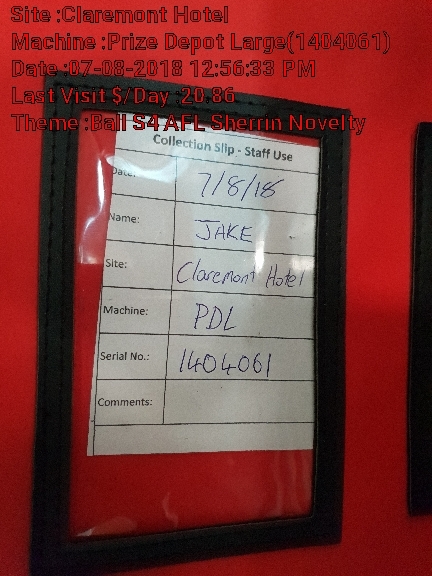 Site :Claremont Hotel
Machine :Prize Depot Large(1404061)
Date :07-08-2018 12:56:33 PM
Last Visit $/Day :20.86
Theme :Ball S4 AFL Sherrin Novelty
Collection Slip - Staff Use
Date: 7/8/18
Name: JAKE
Site: Claremont Hotel
Machine: PDL
Serial No.: 1404061
Comments: